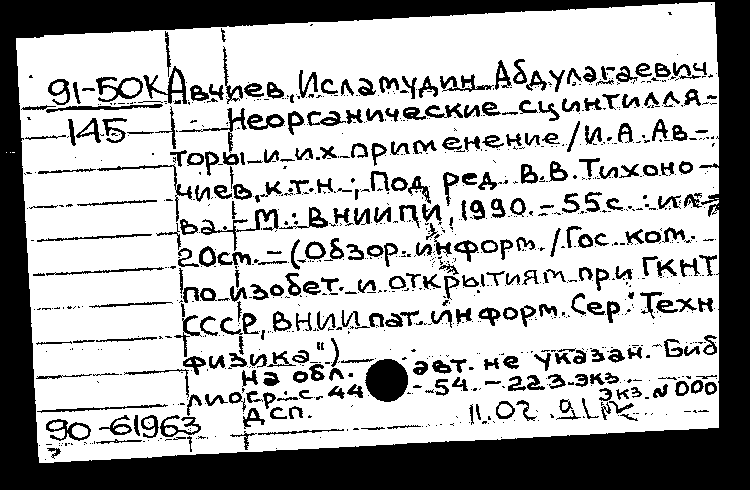 91-50К Авчиев, Исламудин Абдулагаевич
145 Неорганические сцинтилля-
торы и их применение / И.А. Ав-
чиев, к.т.н.; Под ред. В.В. Тихоно-
ва. - М.: ВНИИПИ, 1990. - 55 с. : ил.;
20 см. - (Обзор. информ. / Гос. ком.
по изобет. и открытиям при ГКНТ
СССР, ВНИИ пат. информ. Сер. "Техн
физика")
На обл. авт. не указан. Биб
лиогр.: с. 44 - 54. - 223 экз.
Дсп. экз. N 000
90-61963 11.02.91